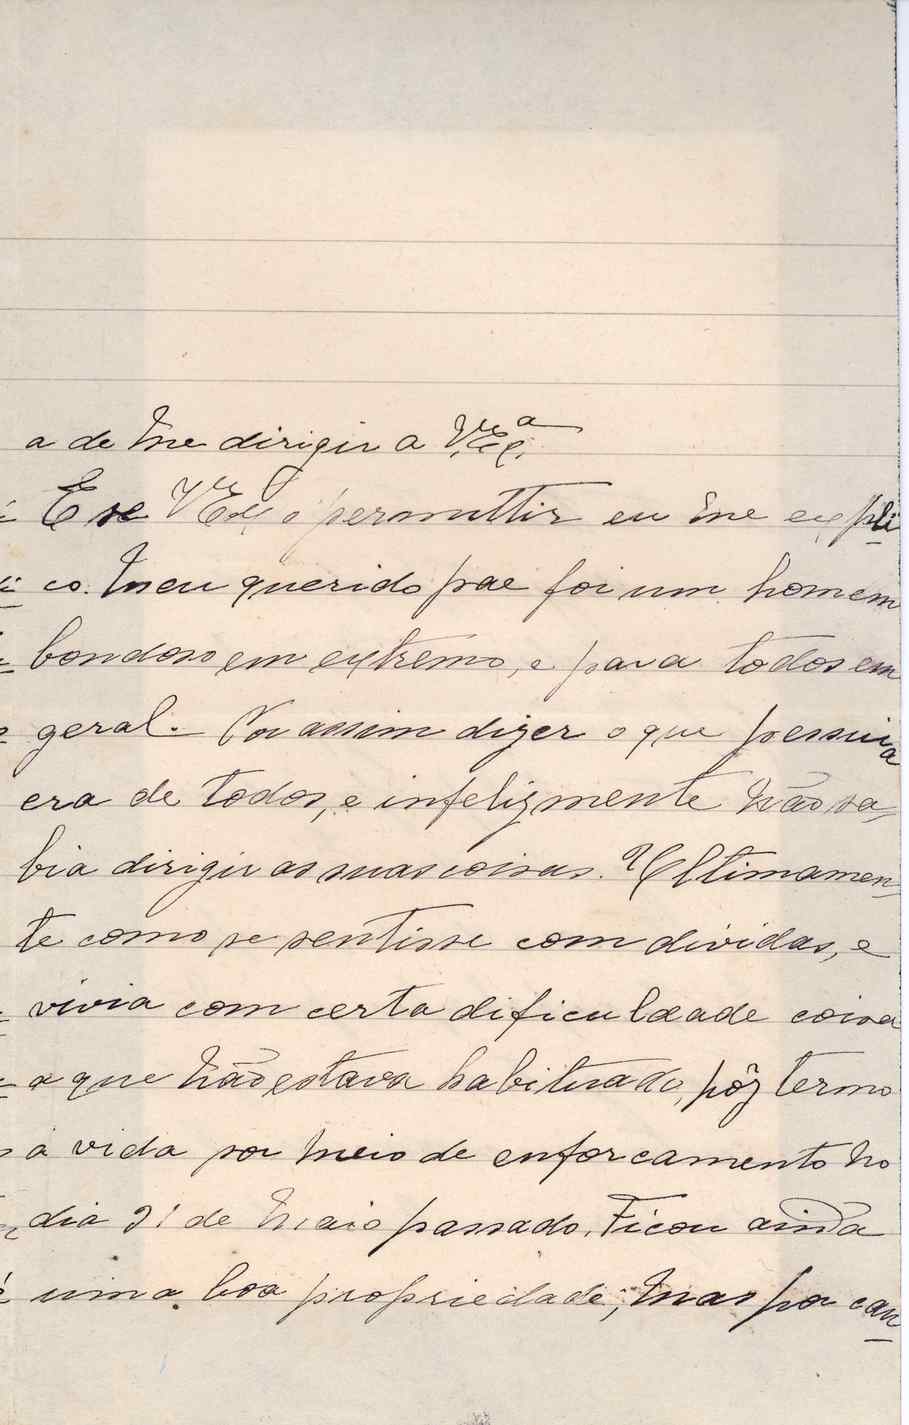 a de me dirigir a V.Exª.
E se VExª o permittir eu me expli
co. Meu querido pae foi um homem
bondoso em extremo, e para todos em
geral. Por assim dizer o que possuia
era de todos, e infelizmente não sa-
bia dirigir as suas coisas. Ultimamen-
te como se sentisse com dividas, e
vivia com certa dificuldade coisa
a que não estava habituado, pôz termo
á vida por meio de enforcamento no
dia 21 de Maio passado. Ficou ainda
uma boa propriedade; mas por cau